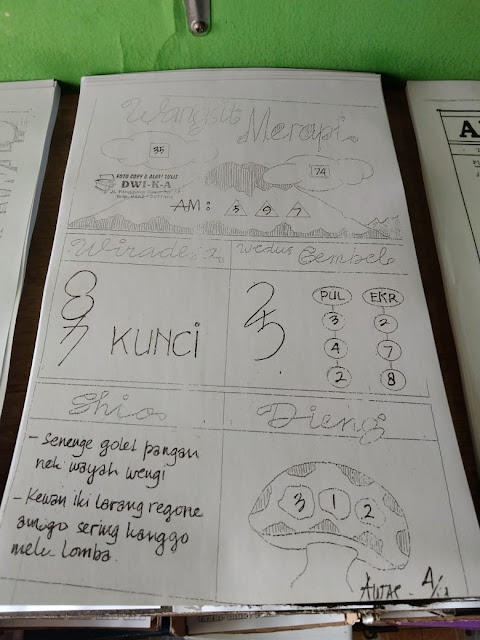 Wangsit
Merapi
35
74
FOTO COPY & ALAT TULIS
DWI-K-A
AM: 5 9 7
Wedus Gembel
8
7 KUNCI
2
5
PUL EKR
3 2
4 7
2 8
Shio
- Senenge golet pangan
nek wayah wengi
- Kewan iki larang regone
sering kanggo
melu lomba.
Dieng
3 1 2